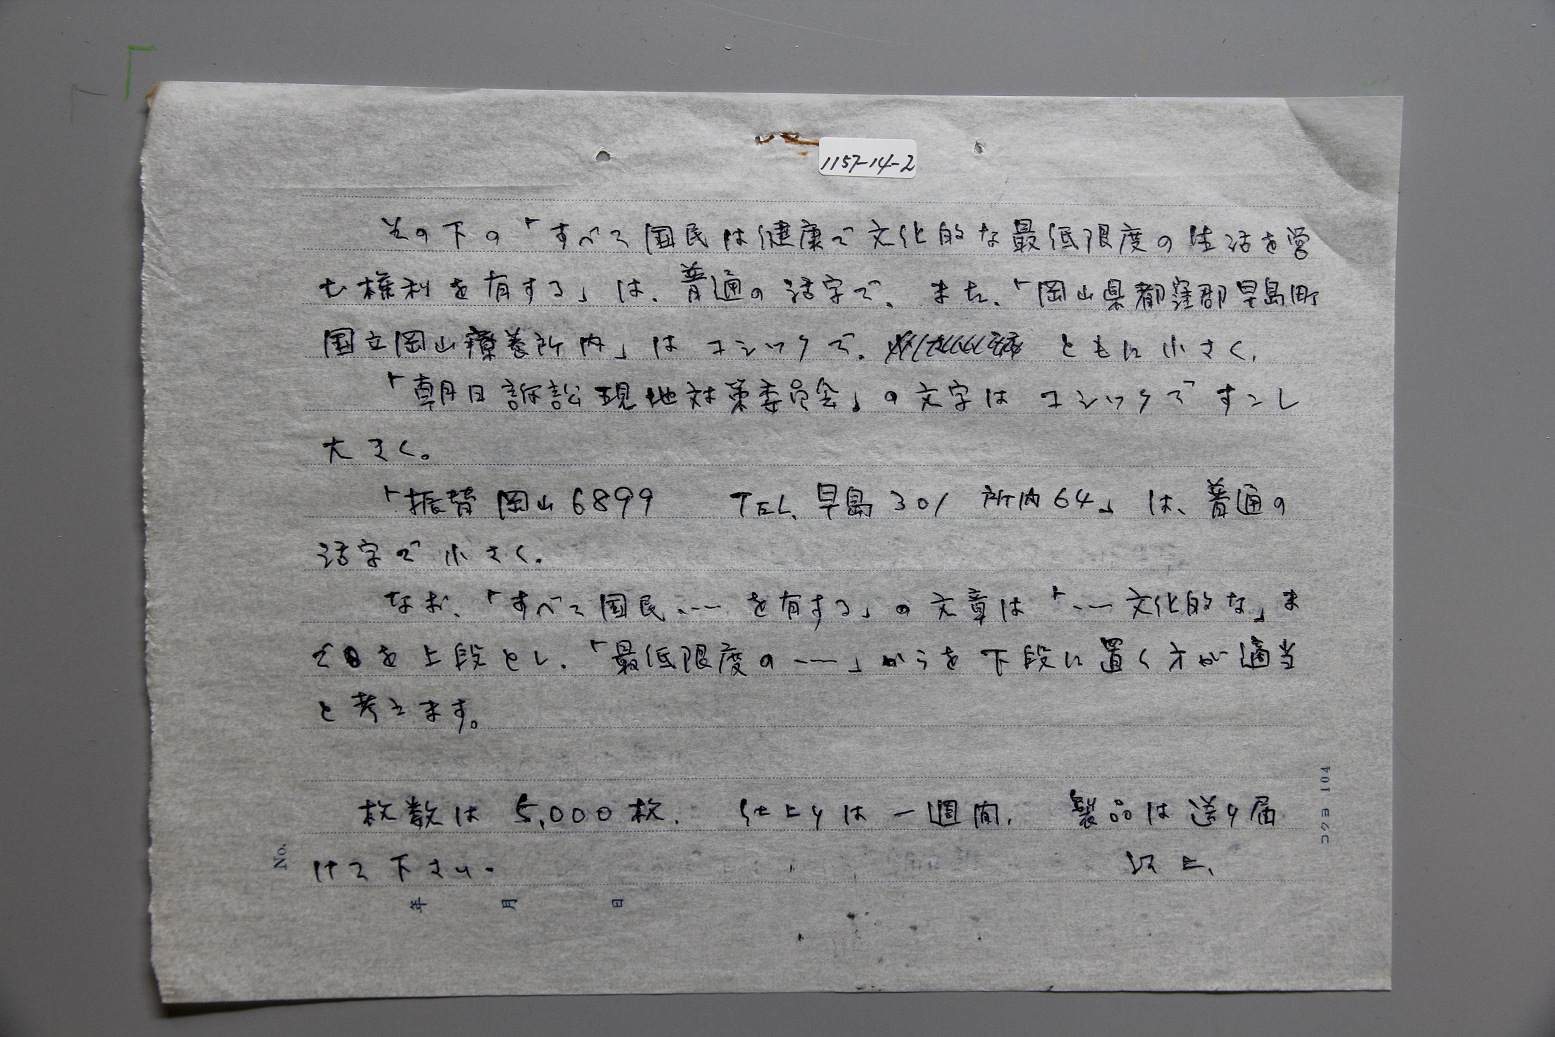 1157-14-2
その下の「すべて国民は健康で文化的な最低限度の生活を営
む権利を有する」は、普通の活字で、また、「岡山県都窪郡早島町
国立岡山療養所内」はゴシックで、ともに小さく、
「朝日訴訟現地対策委員会」の文字はゴシックですこし
大きく。
「振替 岡山6899 TEL、早島301 所内64」は、普通の
活字で小さく。
なお、「すべて国民……を有する」の文章は「……文化的な」ま
でを上段とし、「最低限度の……」からを下段に置く方が適当
と考えます。
枚数は5,000枚、仕上りは一週間、製品は送り届
けて下さい。 以上、
No.
年 月 日
コクヨ 104